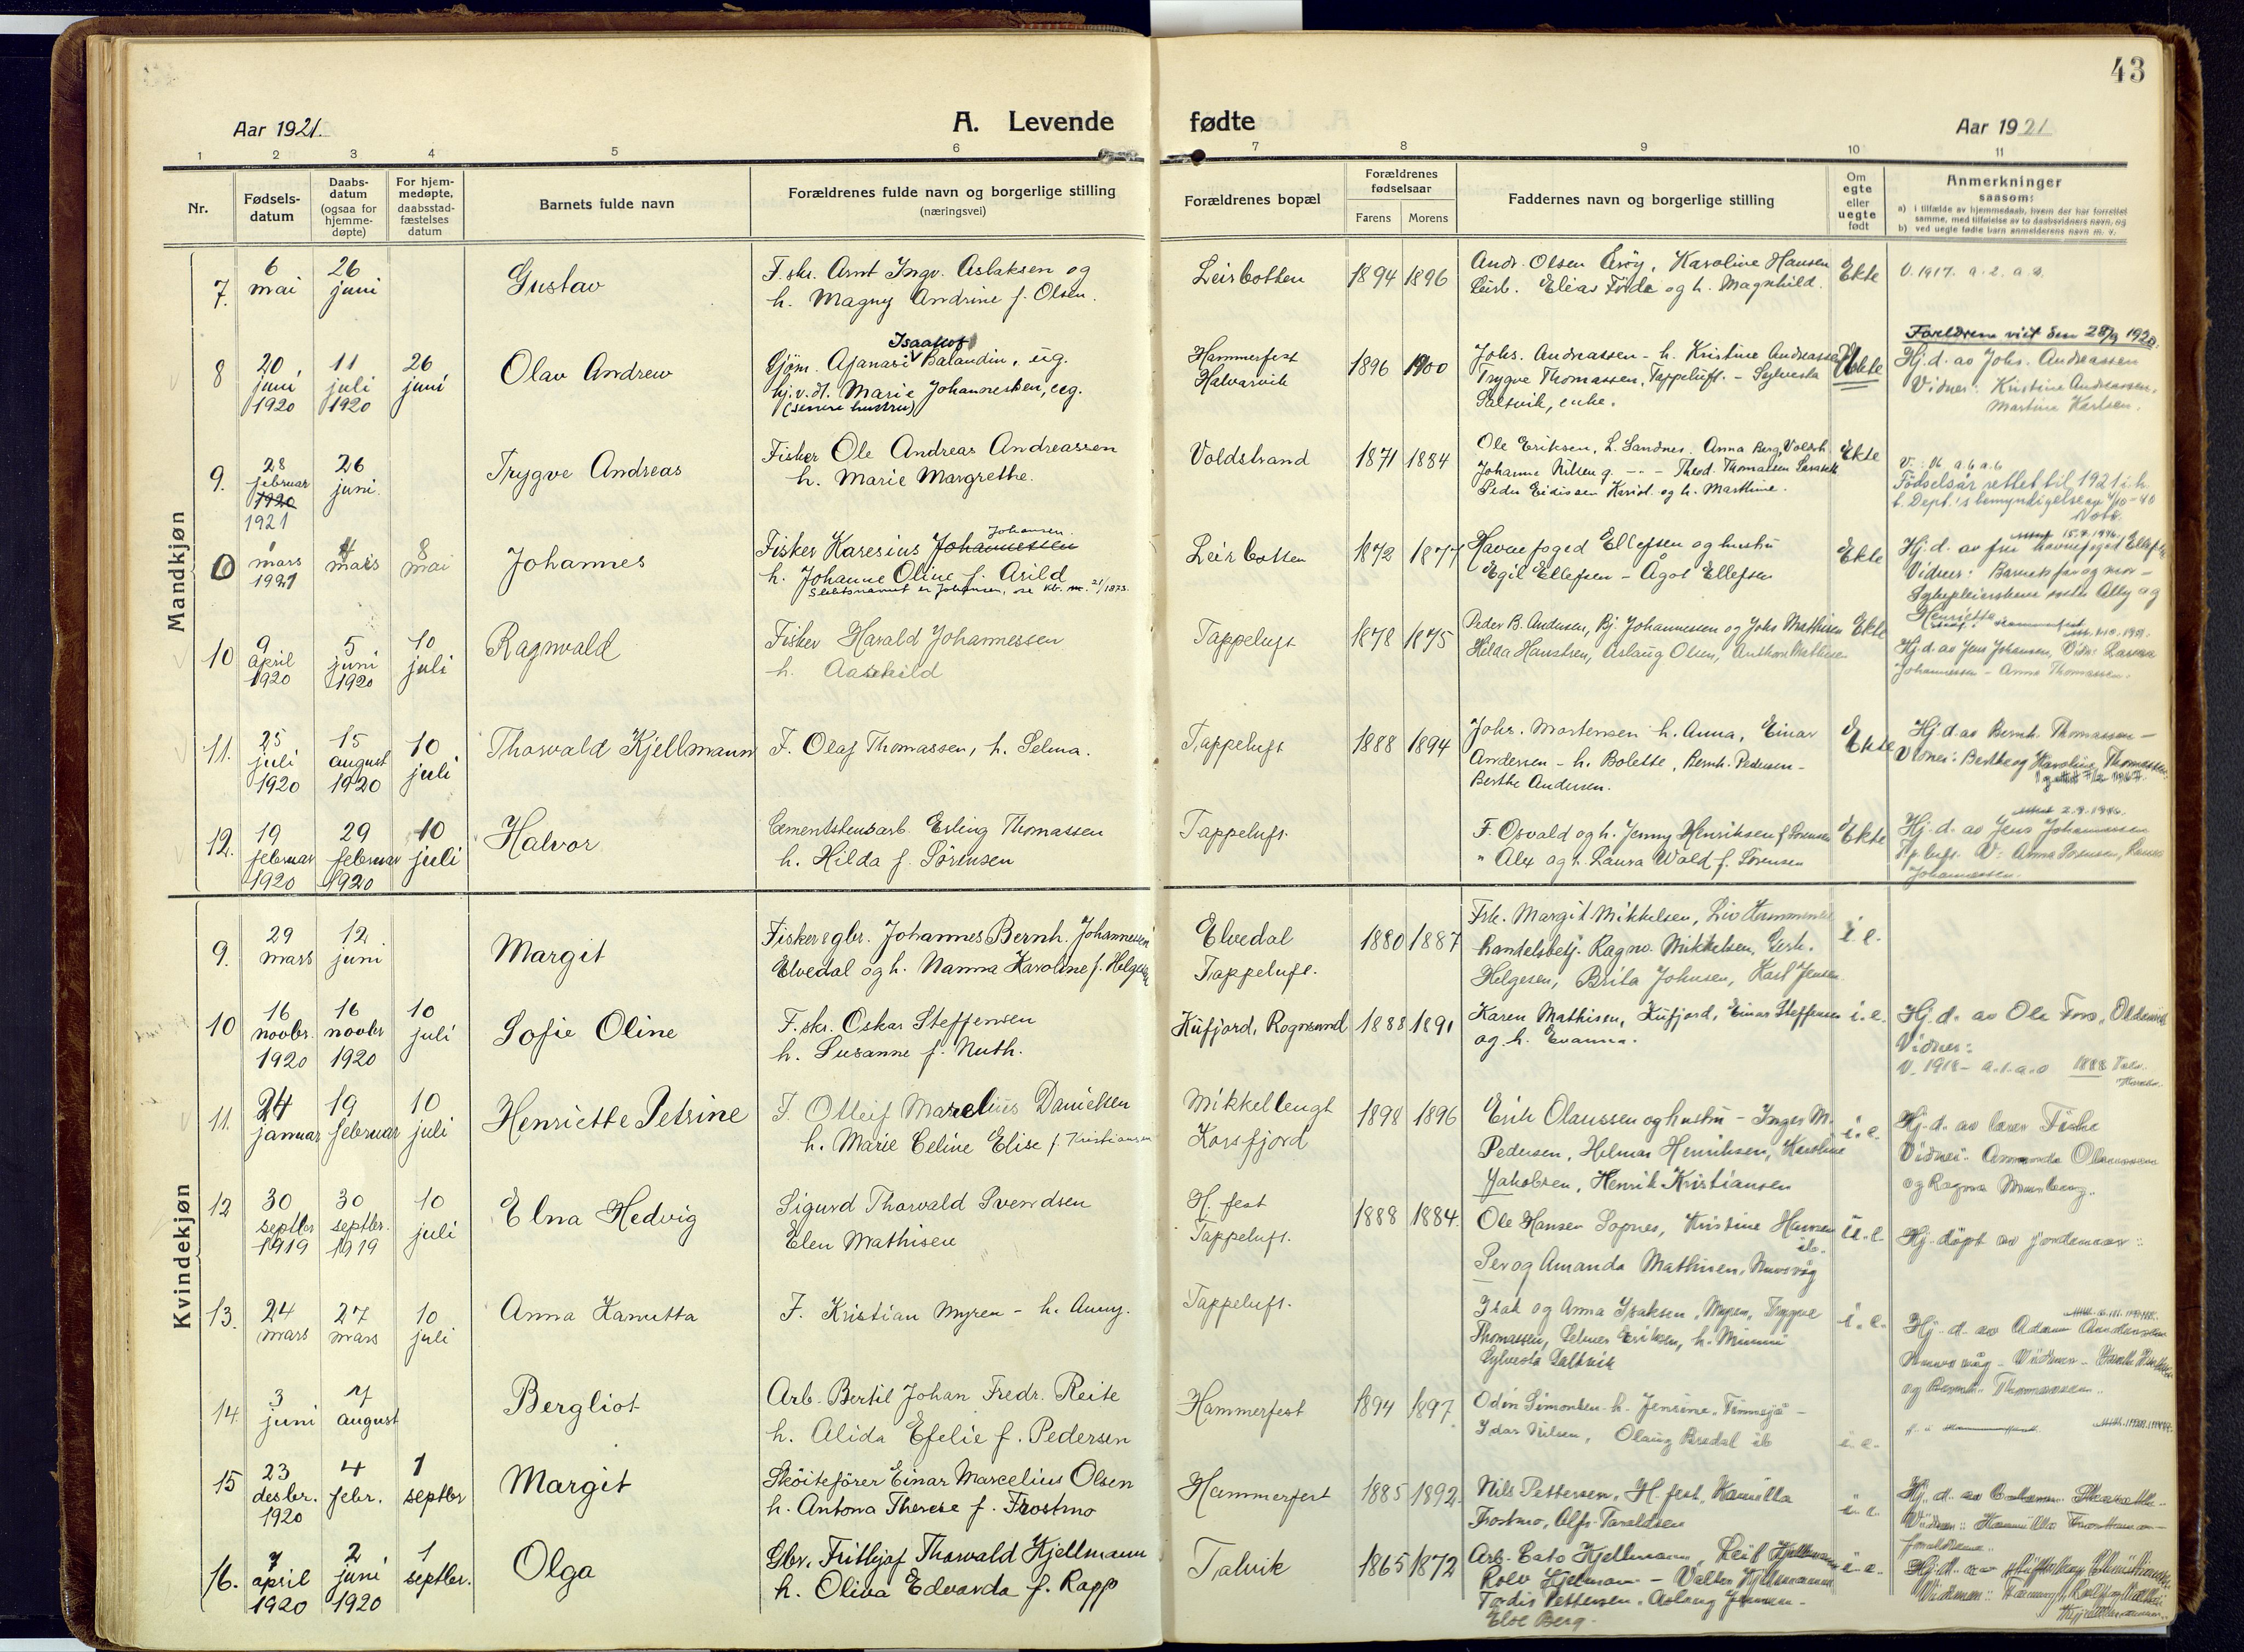 43
Aar 1921.
A. Levende
fødte
Aar 1921
1 2 3 4 5 6 7 8 9 10 11
Nr.
Fødsels-
datum
Daabs-
datum
(ogsaa for
hjemme-
døpte)
For hjem-
medøpte,
daabsstad-
fæstelses
datum
Barnets fulde navn
Forældrenes fulde navn og borgerlige stilling
(næringsvei)
Forældrenes bopæl
Forældrenes
fødselsaar
Farens Morens
Faddernes navn og borgerlige stilling
Om
egte
eller
uegte
født
Anmerkninger
saasom:
a) i tilfælde av hjemmedaab, hvem der har forrettet
samme, med tilføielse av to daabsvidners navn, og
b) ved uegte fødte barn anmelderens navn m. v.
Mandkjøn
7. 6 mai 26 juni
Gustav
F. skr. Arnt Ingv. Aslaksen og
h. Magny Andrine f. Olsen.
Leirbotten
1894 1896
Andr. Olsen Årøy, Karoline Hansen
Leirb. Elias Förde og h. Magnhild.
Ekte
V. 1917. a. 2. a. 0.
8 20 juni 1920 11 juli 1920 26 juni
Olav Andrew
Isaakov
Gjöm. Afanasi Balandin, ug.
hj.v.dt. Marie Johannessen, ug.
(senere hustru)
Hammerfest
Halvarvik
1896 1900
Johs. Andreassen - h. Kristine Andreassen
Trygve Thomassen, Tappeluft. - Sylvesta
Saltvik, enke.
Uekte
Foreldrene viet den 28/9 1920.
Hj. d. av Johs. Andreassen
Vidner: Kristine Andreassen,
Martine Karlsen.
9. 28 februar 1920 1921 26 juni
Trygve Andreas
Fisker Ole Andreas Andreassen
h. Marie Margrethe.
Voldstrand
1871 1884
Ole Eriksen, L. Sandnes. Anna Berg, Voldstr.
Johanne Nilsen g. - - - Theod. Thomassen
Peder Eidissen og h. Marthine.
Ekte
V.: 06 a. 6 a. 6
Födselsår rettet til 1921 i h.
t. Dept.'s bemyndigelse av 4/10-40
mars 1921 4 mars 8 mai
Johannes
Johansen
Fisker Karesius Johannessen
h. Johanne Oline f. Arild
Slektsnavnet er Johansen, se kb. nr. 21/1873.
Leirbotten
1872 1877
Havnefoged Ellefsen og hustru
Egil Ellefsen - Ågot Ellefsen
Ekte
Hj. d. av fru havnefoged Ellefsen
Vidner: Barnets far og mor -
Sykepleierskene söstr Ally og
Henriette
10 9 april 1920 5 juni 1920 10 juli
Ragnvald
Fisker Harald Johannessen
h. Aashild
Tappeluft
1878 1875
Peder B. Andersen, Bj Johannessen og Johs Mathisen
Hilda Hansen, Aslaug Olsen, Anthon Mathisen
Ekte
Hj. d. av Jens Johansen, Vidn: Laura
Johannessen - Anna Thomassen.
11. 25 juli 1920 15 august 1920 10 juli
Thorvald Kjellmann
F. Olaf Thomassen, h. Selma.
Tappeluft
1888 1894
Johs. Mortensen h. Anna, Einar
Andersen - h. Bolette, Bernh. Pedersen -
Berthe Andersen.
Ekte
Hj. d. av Bernh. Thomassen -
Vidner: Berthe og Karoline Thomassen.
12. 19 februar 1920 29 februar 1920 10 juli
Halvor
Cementstensarb. Erling Thomassen
h. Hilda f. Sörensen
Tappeluft.
1894
F. Osvald og h. Jenny Henriksen f. Sörensen
" Alex og h. Laura Wold f. Sörensen
Ekte
Hj. d. av Jens Johannessen
Tp.luft. V: Anna Sörensen, Laura
Johannessen.
Kvindekjøn
9. 29 mars 12 juni
Margit
Fisker & gbr. Johannes Bernh. Johannessen
Elvedal og h. Nanna Karoline f. Helgesen
Elvedal
Tappeluft.
1880 1887
Frk. Margit Mikkelsen, Liv
handelsbetj. Ragnv. Mikkelsen, Gerh.
Helgesen, Brita Johnsen, Karl Jensen
i. e.
10 16 novbr. 1920 16 novbr 1920 10 juli
Sofie Oline
F. skr. Oskar Steffensen
h. Susanne f. Muth.
Küfjord, Rognsund
1888 1891
Karen Mathisen, Küfjord, Einar Steffensen
og h. Evanna.
i. e.
Hj. d. av Ole
Vidner:
V. 1918 - a. 1. a. 0
11. 24 januar 19 februar 10 juli
Henriette Petrine
F. Otleif Marelius Danielsen
h. Marie Celine Elise f. Kristiansen
Mikkellengt
Korsfjord
1898 1896
Erik Olaussen og hustru - Inger M.
Pedersen, Helmar Henriksen, Karoline
Jakobsen, Henrik Kristiansen
i. e.
Hj. d. av lærer Fiske
Vidner: Amanda Olaussen
og Ragna
12 30 septbr 1919 30 septbr. 1919 10 juli
Elna Hedvig
Sigurd Thorvald Svendsen
Elen Mathisen
H. fest
Tappeluft.
1888 1884.
Ole Hansen Sopnes, Kristine Hansen
ib.
Per og Amanda Mathisen,
u. e.
Hj. döpt av jordemor:
13. 24 mars 27 mars 10 juli
Anna Kanutta
F. Kristian Myren - h. Anny.
Tappeluft.
Isak og Anna Isaksen, Myren, Trygve
Thomassen, Selmer Eriksen, h. Minmi
Sylvesta Saltvik
i. e.
Hj. d. av Adam
og Bernh. Thomassen.
14. 3 juni 7 august
Bergliot
Arb. Bertil Johan Fredr. Reite
h. Alida Efelie f. Pedersen
Hammerfest
1894 1897.
Odin Simonsen h. Jensine, Timmesjö -
Idar Nilsen, Olaug Bredal ib
i. e.
15 23 desbr. 1920 4 febr. 1 septbr
Margit
Sköitefører Einar Marcelius Olsen
h. Antona Therese f. Frostmo
Hammerfest
1885 1892.
Nils Pettersen, H. fest, Kamilla
Frostmo, Alfr. Taraldsen
i. e.
16. 7 april 1920 2 juni 1920 1 septbr.
Olga
Gbr. Frithjof Thorvald Kjellmann
h. Oliva Edvarda f. Rapp
Talvik
1865 1872
Arb. Cato Kjellmann, Leif Kjellmann
Rolv Kjelman - Valter Kjellmann
Tordis Pettersen, Aslaug Jensen -
Else Berg.
i. e.